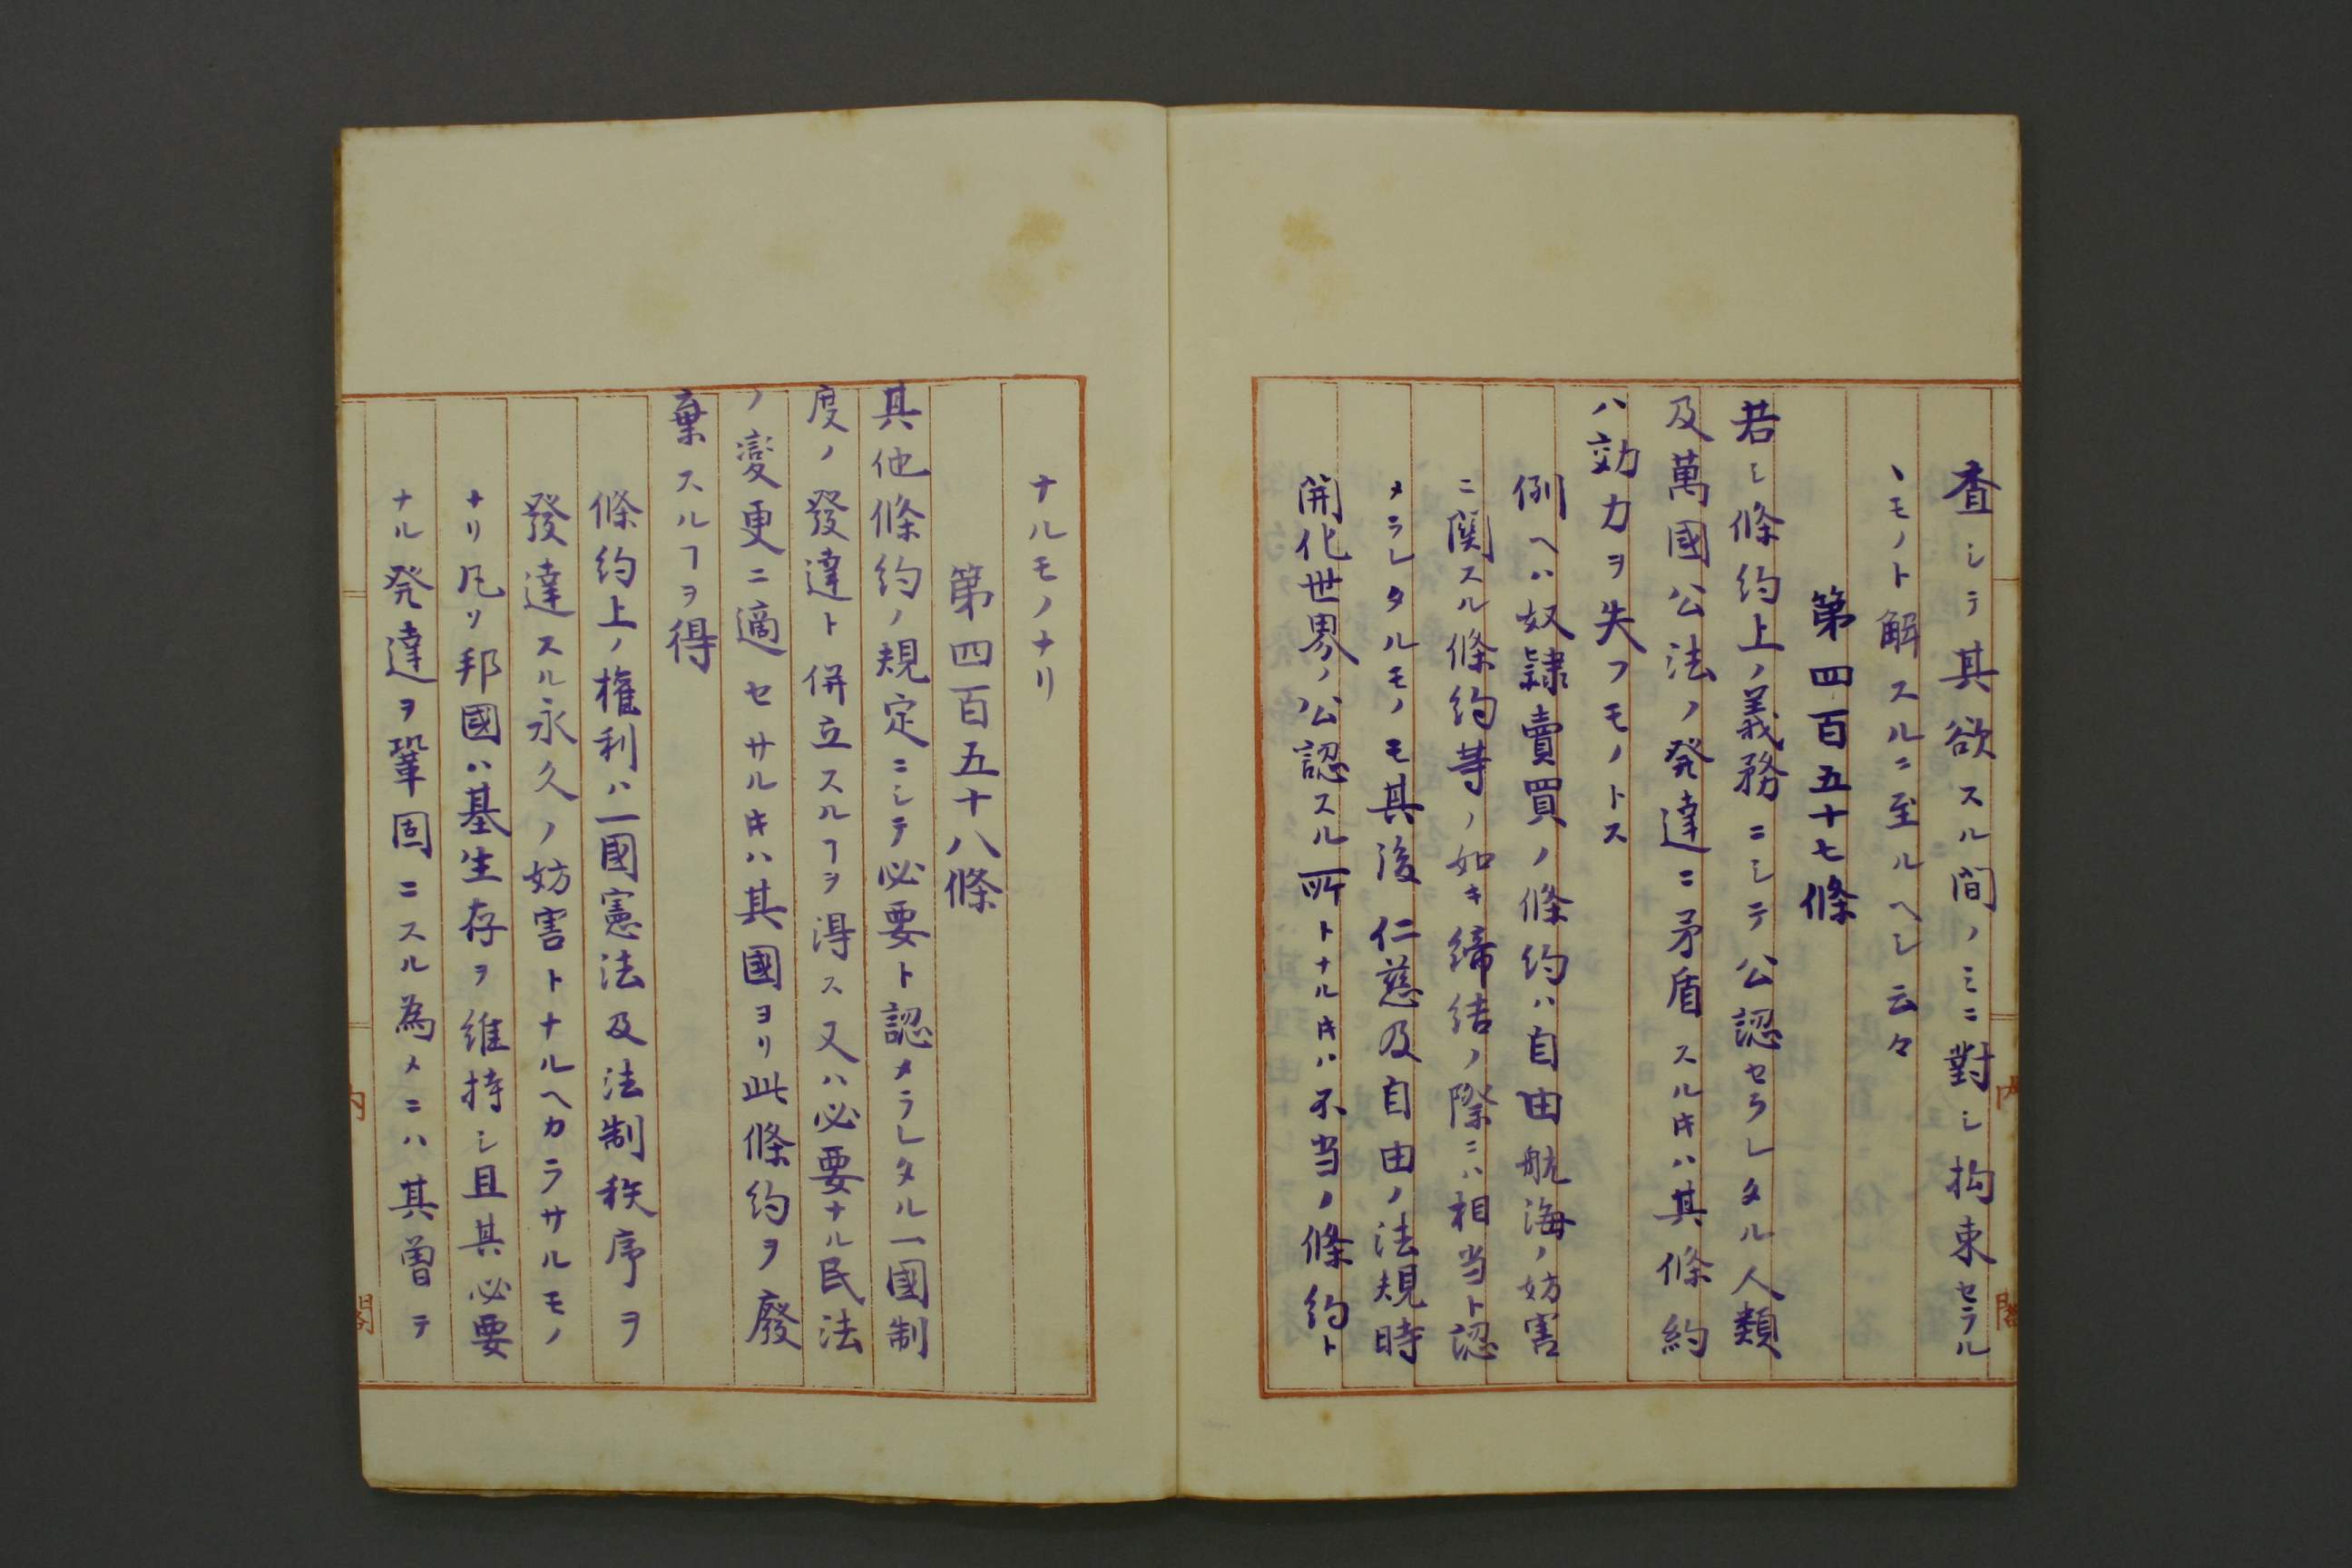 査シテ其欲スル間ノミニ對シ拘束セラル
ヽモノト解スルニ至ルヘシ云々
第四百五十七條
若シ條約上ノ義務ニシテ公認セラレタル人類
及萬國公法ノ発達ニ矛盾スルキハ其條約
ハ効力ヲ失フモノトス
例ヘハ奴隷賣買ノ條約ハ自由航海ノ妨害
ニ関スル條約等ノ如キ締結ノ際ニハ相当ト認
メラレタルモノモ其後仁慈及自由ノ法規時
開化世界ノ公認スル所トナルキハ不当ノ條約ト
ナルモノナリ
第四百五十八條
其他條約ノ規定ニシテ必要ト認メラレタル一國制
度ノ發達ト併立スルヿヲ得ス又ハ必要ナル民法
ノ變更ニ適セサルキハ其國ヨリ此條約ヲ廢
棄スルヿヲ得
條約上ノ権利ハ一國憲法及法制秩序ヲ
發達スル永久ノ妨害トナルヘカラサルモノ
ナリ凡ソ邦國ハ基生存ヲ維持シ且其必要
ナル発達ヲ鞏固ニスル為メニハ其曽テ
内閣
内閣